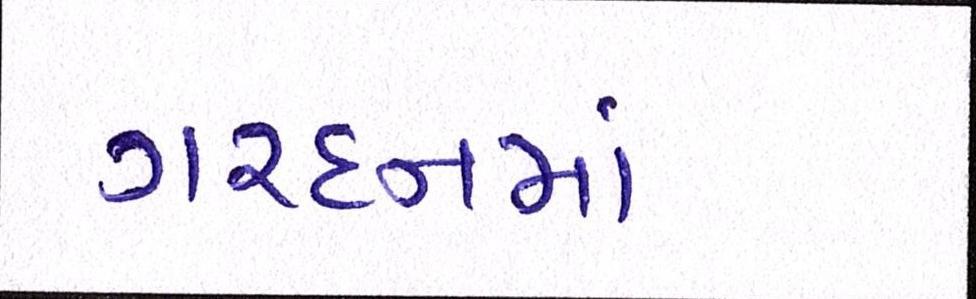 ગરદનમાં